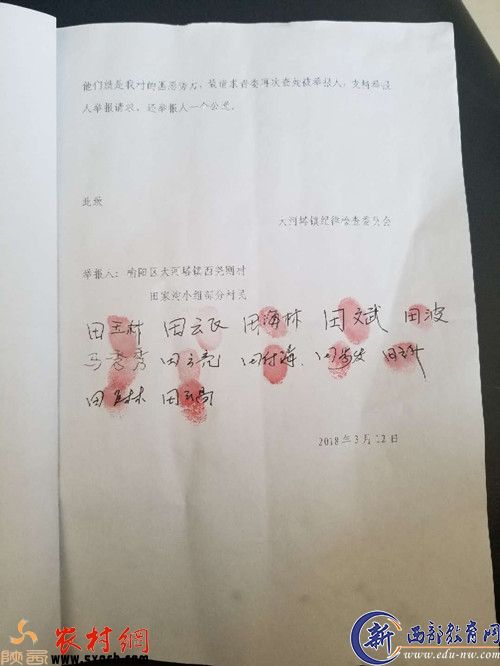 他们就是我村的黑恶势力，故请求贵委再次查处被举报人，支持举报
人举报请求，还举报人一个公道。
此致
大河塔镇纪律检查委员会
举报人：榆阳区大河塔镇西尧则村
田家湾小组部分村民
田玉林 田云民 田海林 田文武 田波
马秀秀 田付海
田玉林
2018年3月12日
陕西 农村網
www.sxncb.com
新 西部教育网
www.edu-nw.com